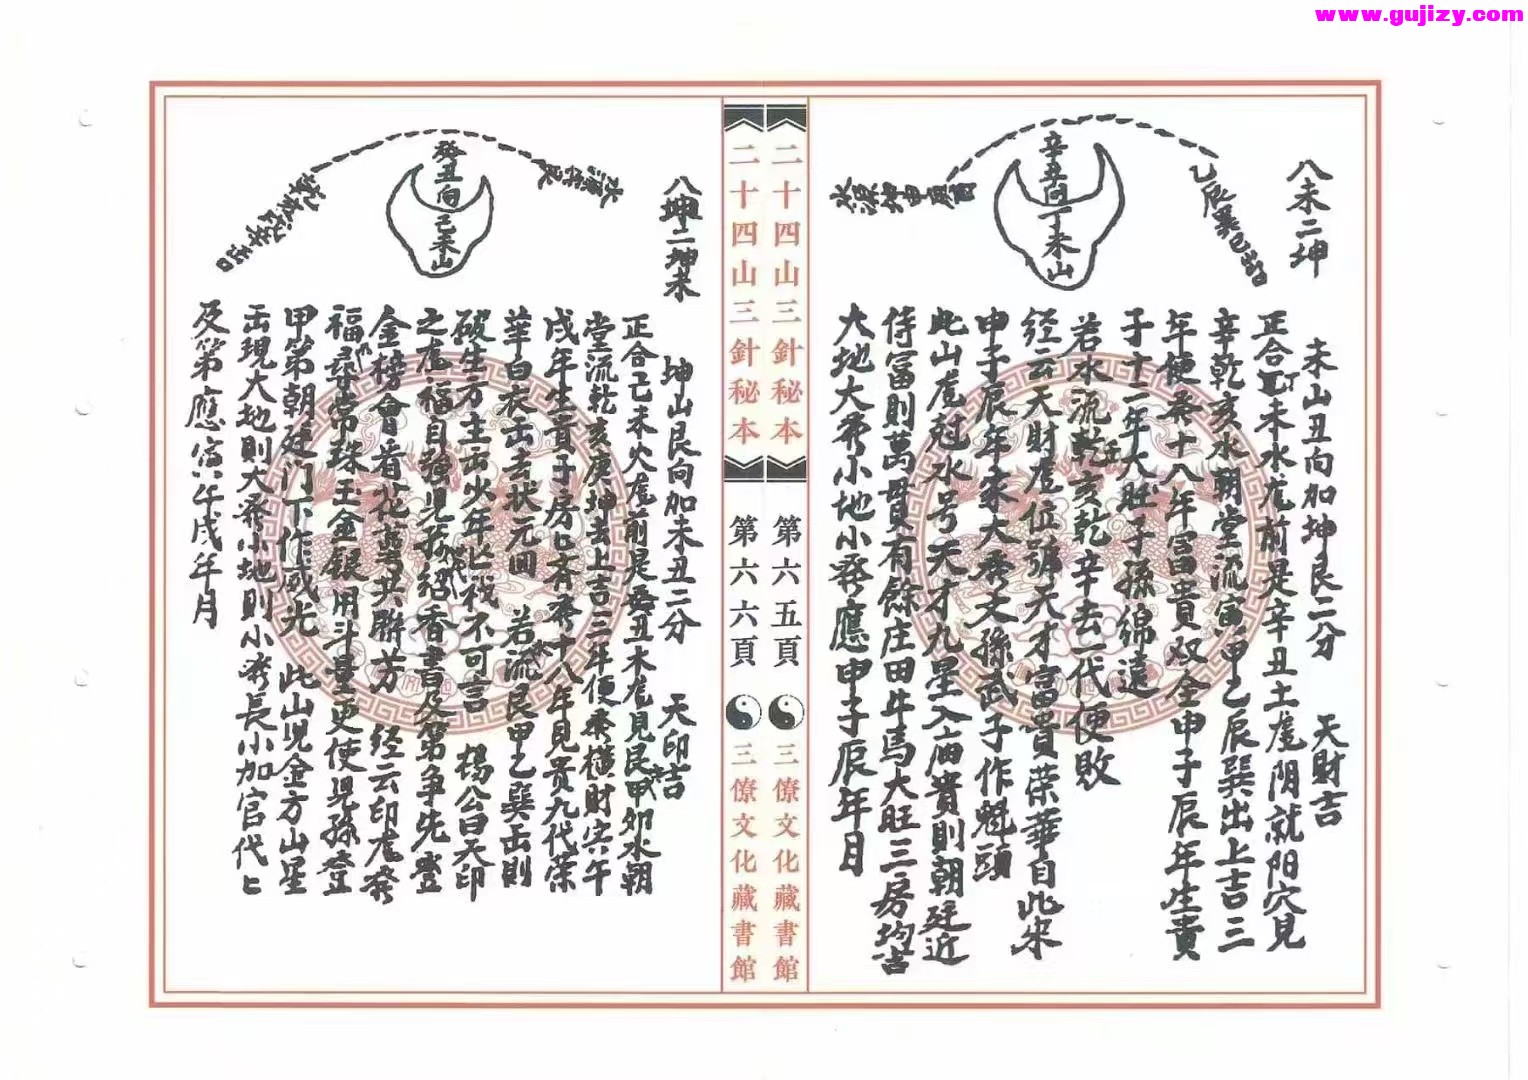 www.gujizy.com
八未二坤
辛丑向丁未山
水源坤申庚酉
乙辰巽巳出
未山丑向加坤艮二分 天財吉
正合丁未水度前是辛丑土度阴就阳穴見
辛乾亥水朝堂流寅甲乙辰巽出上吉三
年便發十八年富貴双全申子辰年生貴
子十二年大旺子孫綿遠
若水流乾亥壬乾辛去一代便敗
经云天財度位號天才富貴荣華自此来
申子辰年来大發文孫武子作魁頭
此山度冠水号天才九星入庙貴則朝廷近
侍富則萬貫有餘庄田牛馬大旺三房均吉
大地大發小地小發應申子辰年月
二十四山三針秘本
第六五頁
三僚文化藏書館
二十四山三針秘本
第六六頁
三僚文化藏書館
八坤二坤未
癸丑向己未山
坤山艮向加未丑二分 天印吉
正合己未火度前是癸丑木度見艮甲卯水朝
堂流乾亥庚坤去上吉三年便發橫財寅午
戌年生貴子房房齐發十八年見贵九代荣
華白衣出去状元回 若流艮甲乙巽出則
破生方主出少年亡我不可言 楊公曰天印
之度福自强兒孫紹香書及第争先登
金榜會着花鸞共聯芳 经云印度發
福尋常珠玉金銀用斗量更使兒孫登
甲第朝廷门下作威光 此山児金方山星
出現大地則大發小地則小發長小加官代代
及第應寅午戌年月